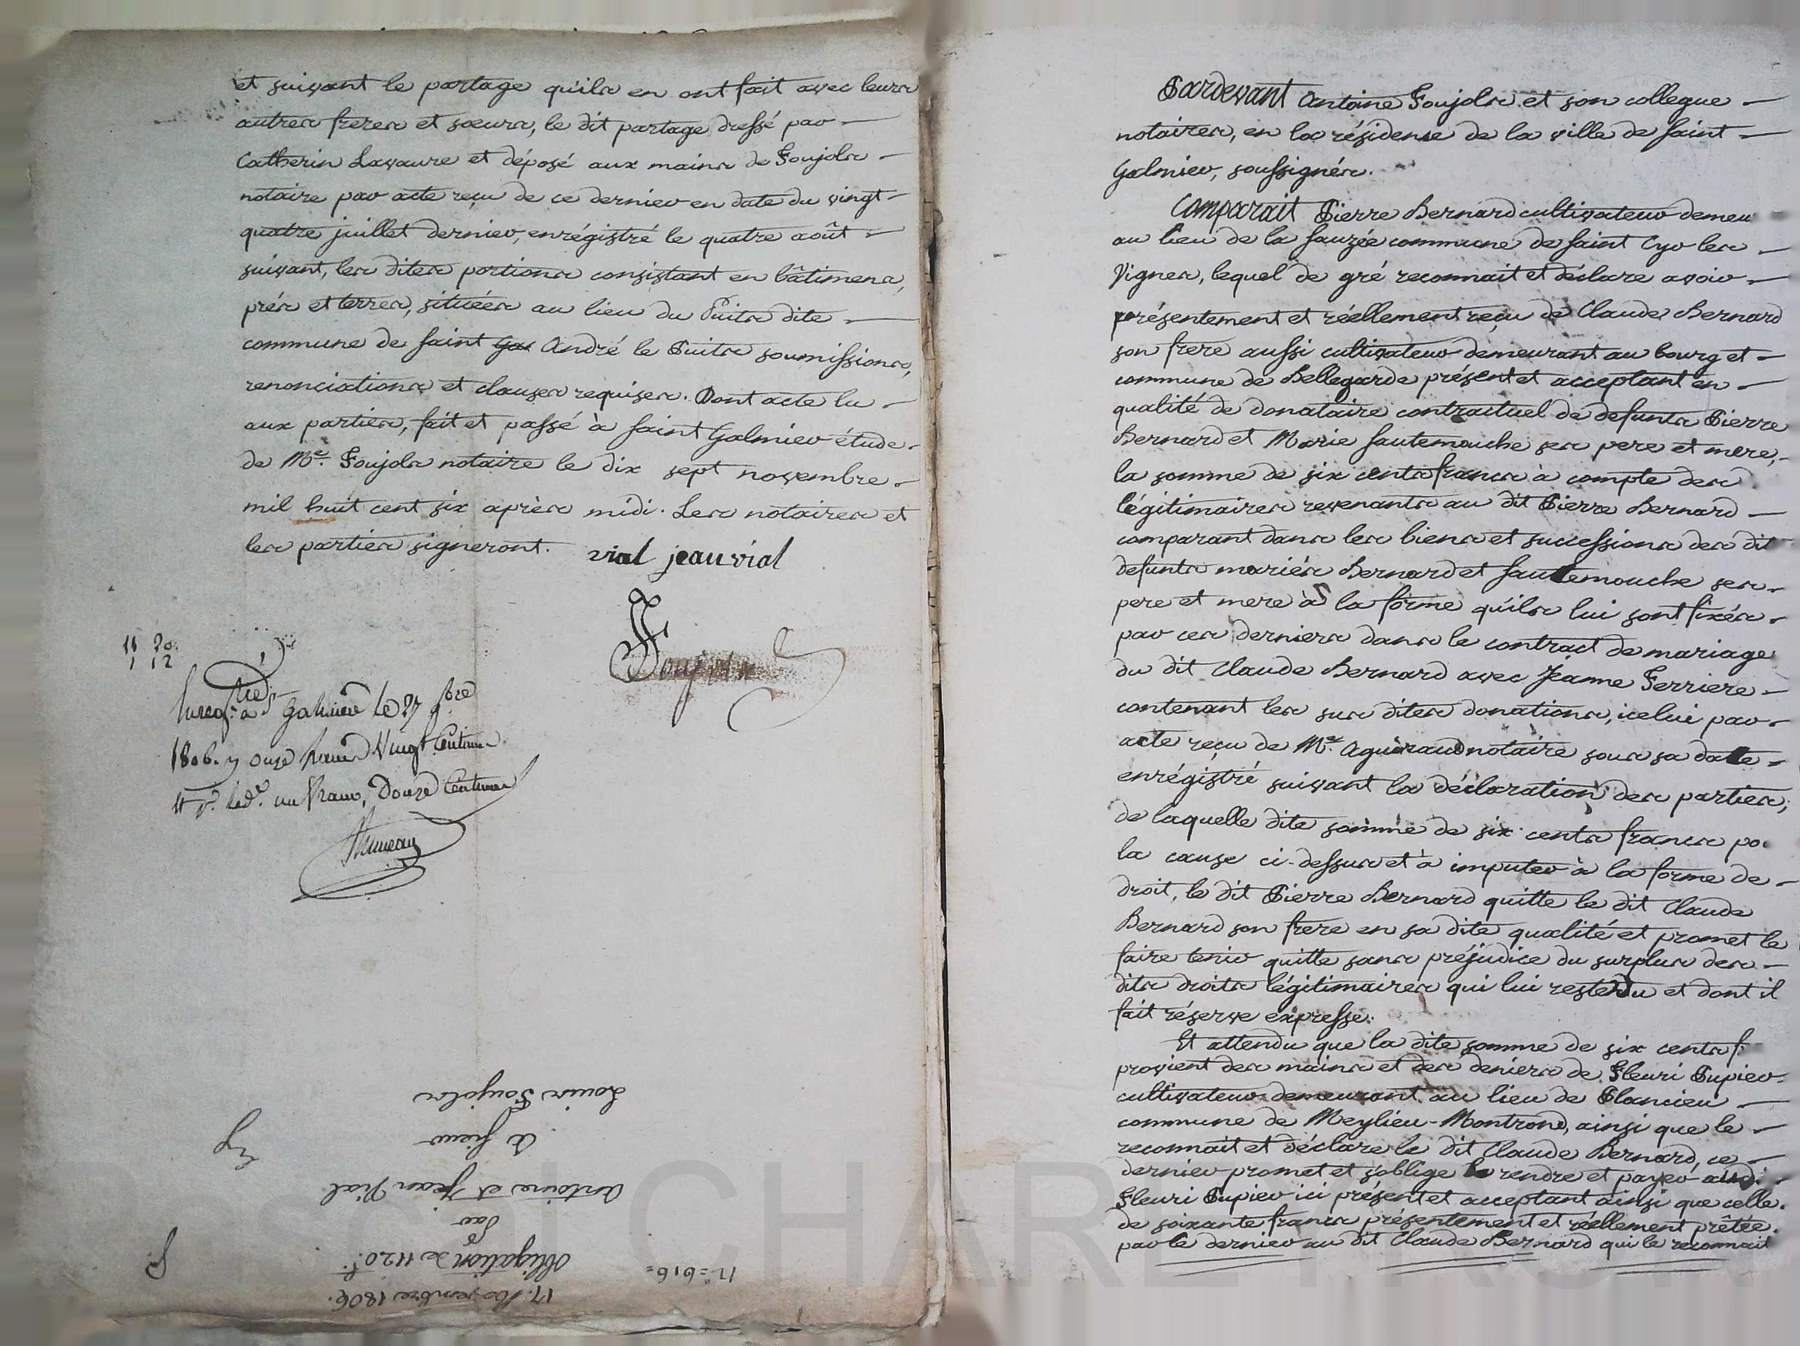 et suivant le partage qu'ils en ont fait avec leurs
autres freres et sœurs, le dit partage dressé par
Catherin Lavaure et déposé aux mains de Foujols
notaire par acte reçu de ce dernier en date du vingt
quatre juillet dernier, enrégistré le quatre août
suivant, les dites portions consistant en bâtimens,
prés et terres, situées au lieu du Puits dite
commune de saint Gal André le Puits soumissions,
renonciations et clauses requises. Dont acte lu
aux parties, fait et passé à saint Galmier étude
de Me. Foujols notaire le dix sept novembre
mil huit cent six après midi. Les notaires et
les parties signeront. vial jean vial
Foujols
11 20
1 12
Enregtré à St Galmier le 27 9bre
1806. onze francs Vingt Centimes
un franc, Douze Centimes
n°=616=
17. Novembre 1806.
Obligation de 1120f.
Par
Antoine et Jean Vial
A sieur
Louis Foujols
Pardevant Antoine Foujols et son collegue
notaires, en la résidense de la ville de saint
Galmier, soussignés.
Comparait Pierre Bernard cultivateur demeu
au lieu de la sauzée commune de saint Cyr les
Vignes, lequel de gré reconnait et déclare avoir
présentement et réellement reçu de Claude Bernard
son frere aussi cultivateur demeurant au bourg et
commune de Bellegarde présent et acceptant en
qualité de donataire contractuel de defunts Pierre
Bernard et Marie sautemouche ses pere et mere,
la somme de six cents francs à compte des
légitimaires revenants au dit Pierre Bernard
comparant dans les biens et successions des dit
defunts mariés Bernard et sautemouche ses
pere et mere à la forme qu'ils lui sont fixés
par ces derniers dans le contract de mariage
du dit Claude Bernard avec Jeanne Ferriere
contenant les sus dites donations, icelui par
acte reçu de Me. Aguiraud notaire sous sa date
enrégistré suivant la déclaration des parties,
de laquelle dite somme de six cents francs po
la cause ci-dessus et à imputer à la forme de
droit, le dit Pierre Bernard quitte le dit Claude
Bernard son frere en sa dite qualité et promet le
faire tenir quitte sans préjudice du surplus des
dits droits légitimaires qui lui reste du et dont il
fait réserve expresse.
Et attendu que la dite somme de six cents f.
provient des mains et des deniers de Fleuri Cupier
cultivateur demeurant au lieu de Plancieu
commune de Meylieu-Montrond, ainsi que le
reconnait et déclare le dit Claude Bernard, ce
dernier promet et s'oblige la rendre et payer audi
Fleuri Cupier ici présent et acceptant ainsi que celle
de soixante francs présentement et réellement prêtée
par le dernier au dit Claude Bernard qui le reconnait